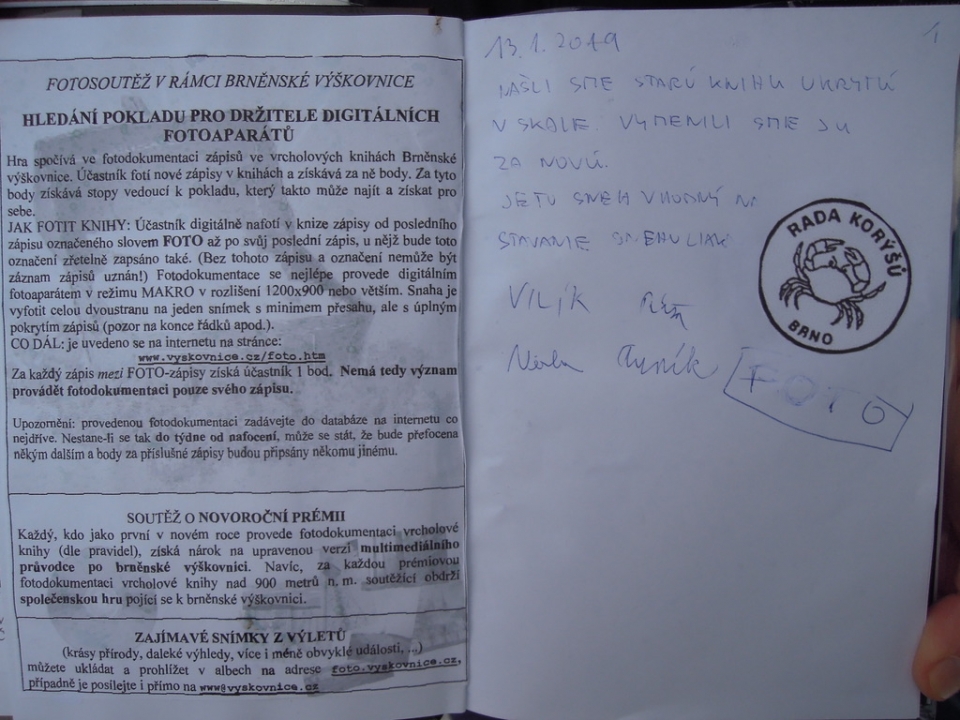 FOTOSOUTĚŽ V RÁMCI BRNĚNSKÉ VÝŠKOVNICE
HLEDÁNÍ POKLADU PRO DRŽITELE DIGITÁLNÍCH
FOTOAPARÁTŮ
Hra spočívá ve fotodokumentaci zápisů ve vrcholových knihách Brněnské
výškovnice. Účastník fotí nové zápisy v knihách a získává za ně body. Za tyto
body získává stopy vedoucí k pokladu, který takto může najít a získat pro
sebe.
JAK FOTIT KNIHY: Účastník digitálně nafotí v knize zápisy od posledního
zápisu označeného slovem FOTO až po svůj poslední zápis, u nějž bude toto
označení zřetelně zapsáno také. (Bez tohoto zápisu a označení nemůže být
záznam zápisů uznán!) Fotodokumentace se nejlépe provede digitálním
fotoaparátem v režimu MAKRO v rozlišení 1200x900 nebo větším. Snaha je
vyfotit celou dvoustranu na jeden snímek s minimem přesahu, ale s úplným
pokrytím zápisů (pozor na konce řádků apod.).
CO DÁL: je uvedeno se na internetu na stránce:
www.vyskovnice.cz/foto.htm
Za každý zápis mezi FOTO-zápisy získá účastník 1 bod. Nemá tedy význam
provádět fotodokumentaci pouze svého zápisu.
Upozornění: provedenou fotodokumentaci zadávejte do databáze na internetu co
nejdříve. Nestane-li se tak do týdne od nafocení, může se stát, že bude přefocena
někým dalším a body za příslušné zápisy budou připsány někomu jinému.
SOUTĚŽ O NOVOROČNÍ PRÉMII
Každý, kdo jako první v novém roce provede fotodokumentaci vrcholové
knihy (dle pravidel), získá nárok na upravenou verzi multimediálního
průvodce po brněnské výškovnici. Navíc, za každou prémiovou
fotodokumentaci vrcholové knihy nad 900 metrů n. m. soutěžící obdrží
společenskou hru pojící se k brněnské výškovnici.
ZAJÍMAVÉ SNÍMKY Z VÝLETŮ
(krásy přírody, daleké výhledy, více i méně obvyklé události, ...)
můžete ukládat a prohlížet v albech na adrese foto.vyskovnice.cz,
případně je posílejte i přímo na www@vyskovnice.cz
1
13.1.2019
NAŠLI SME STARÚ KNIHU UKRYTÚ
V SKALE. VYMENILI SME JU
ZA NOVÚ.
JE TU SNEH VHODNÝ NA
STAVANIE SNEHULIAK
VILÍK
RADA KORÝŠŮ
BRNO
FOTO